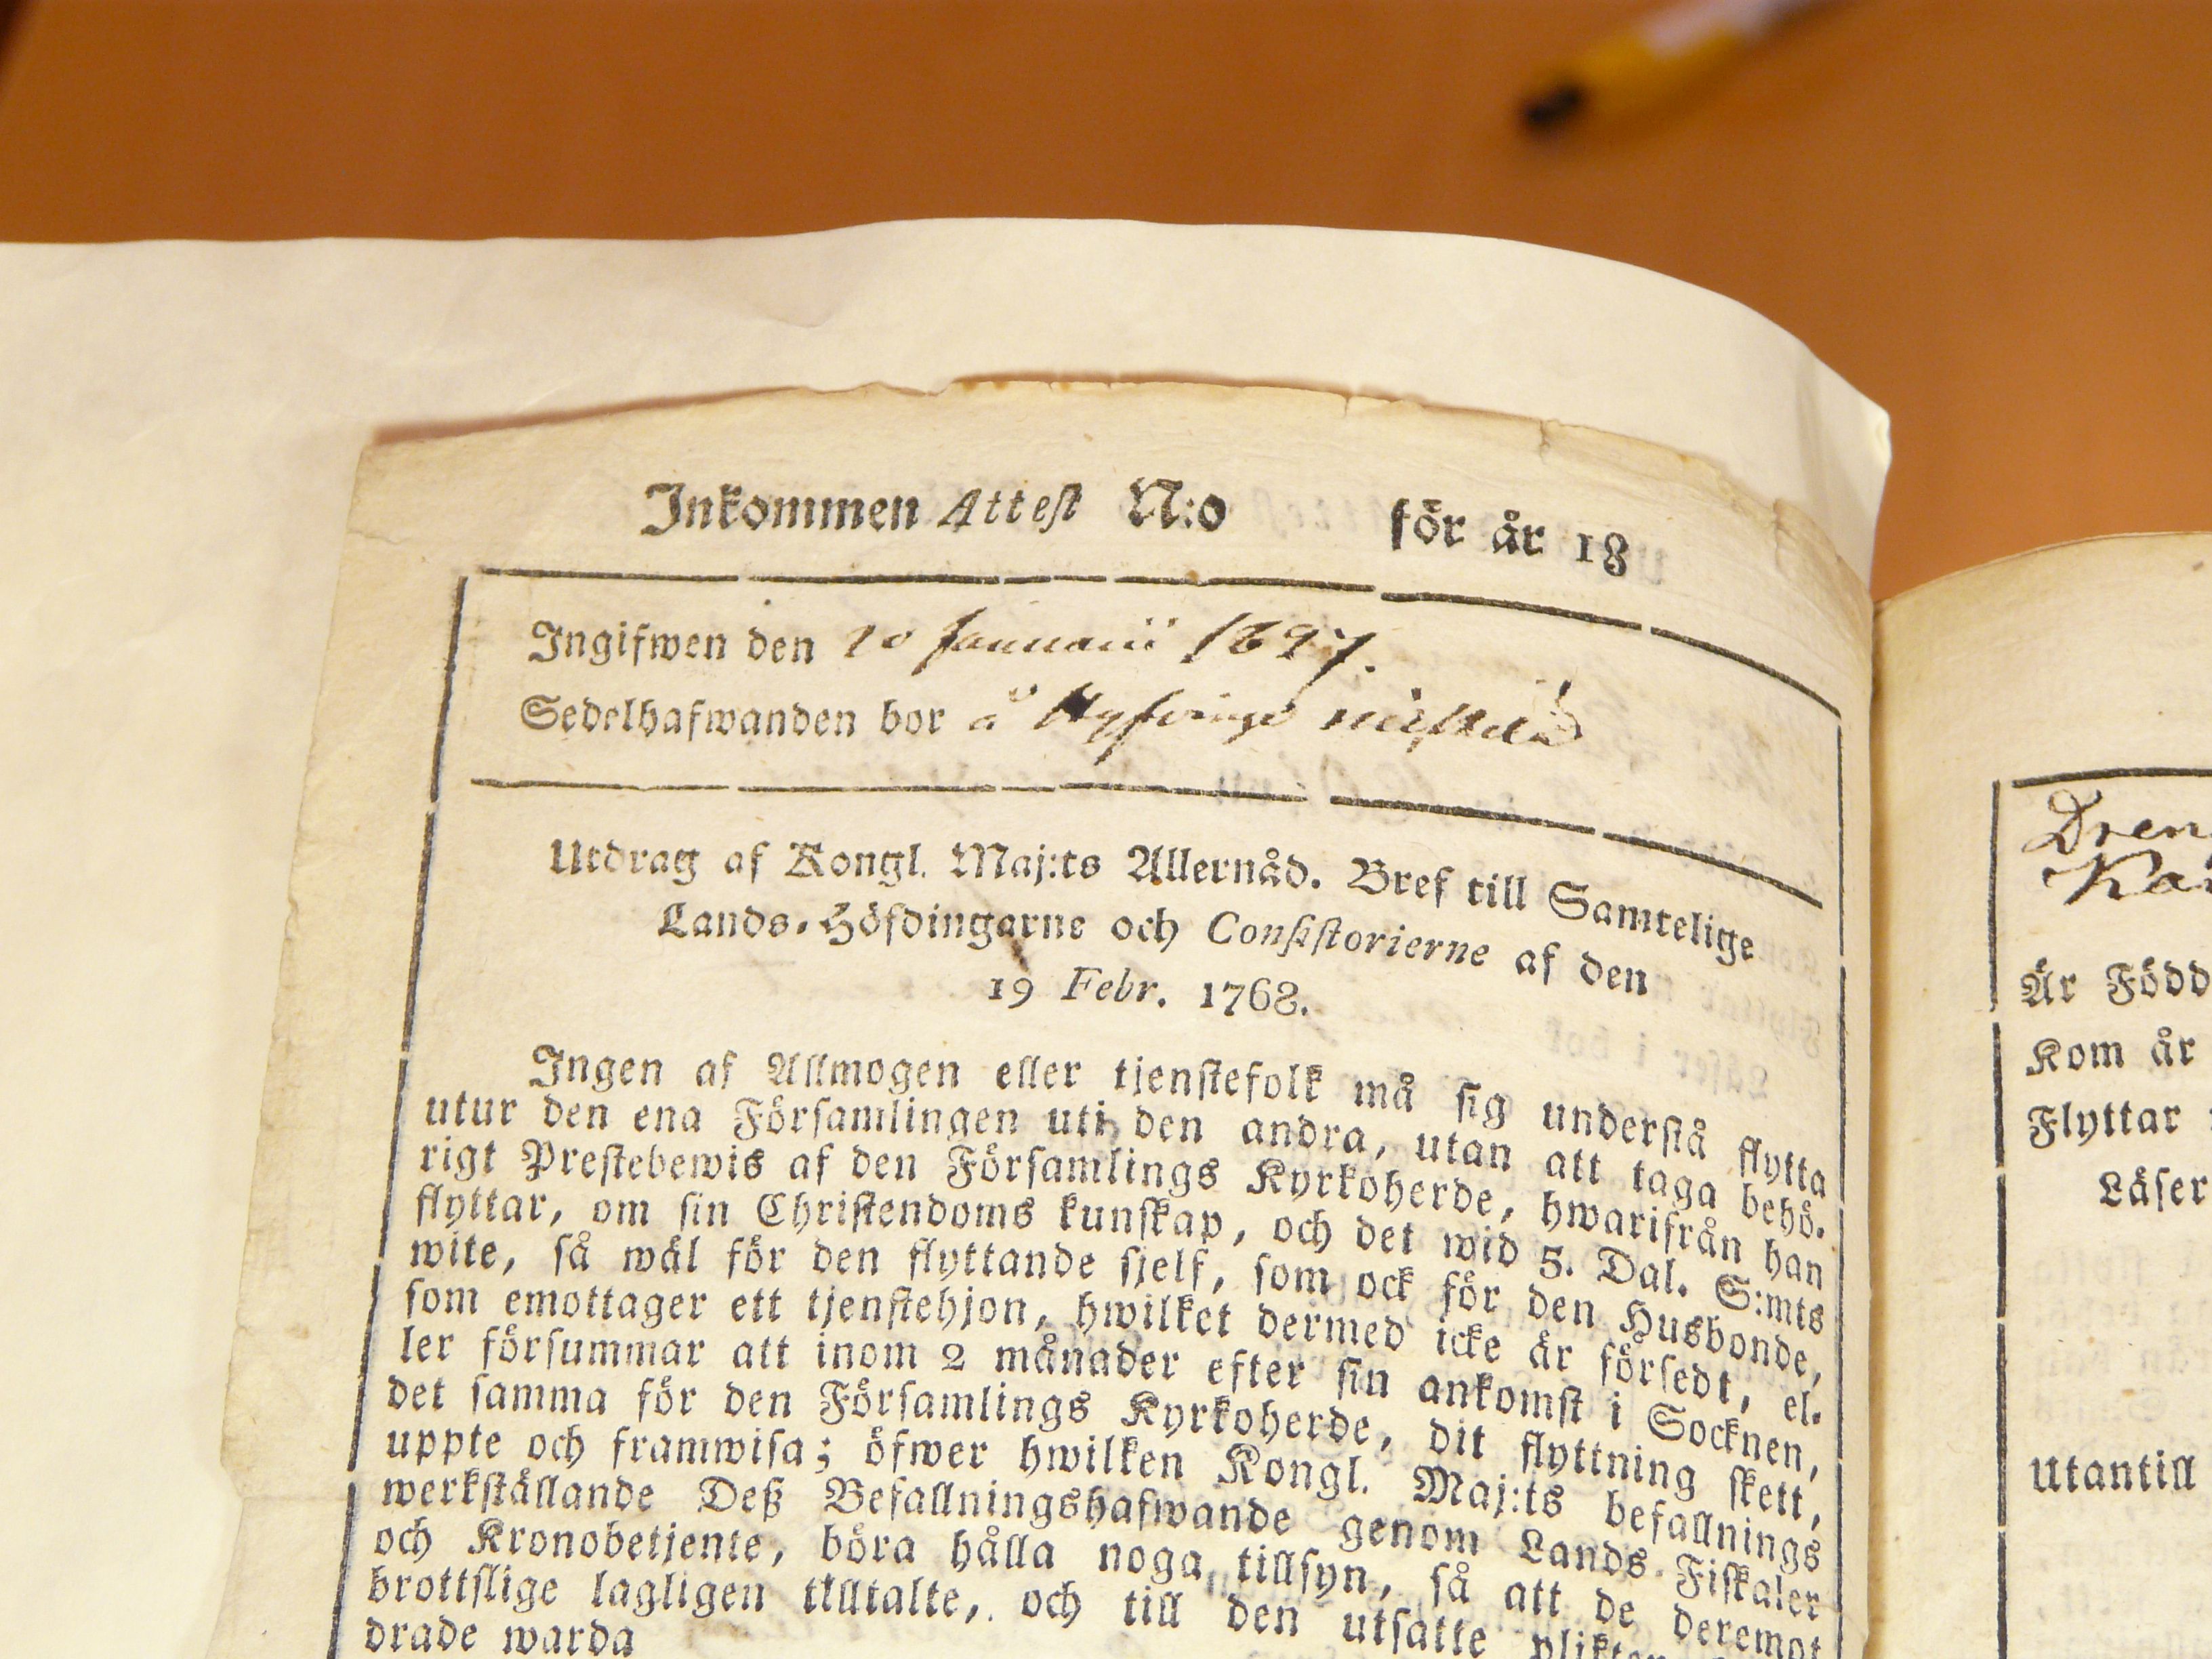 Inkommen Attest N:o för år 18
Ingifwen den 20 Januarii 1827.
Sedelhafwanden bor å
Utdrag af Kongl. Maj:ts Allernåd. Bref till Samtelige
Lands-Höfdingarne och Consistorierne af den
19 Febr. 1768.
Ingen af Allmogen eller tjenstefolk må sig understå flytta
utur den ena Församlingen uti den andra, utan att taga behö-
rigt Prestebewis af den Församlings Kyrkoherde, hwarifrån han
flyttar, om sin Christendoms kunskap, och det wid 5. Dal. S:mts
wite, så wäl för den flyttande sjelf, som ock för den Husbonde,
som emottager ett tjenstehjon, hwilket dermed icke är försedt, el-
ler försummar att inom 2 månader efter sin ankomst i Socknen,
det samma för den Församlings Kyrkoherde, dit flyttning skett,
uppte och framwisa; öfwer hwilken Kongl. Maj:ts befallnings
werkställande Deß Befallningshafwande genom Lands-Fiskaler
och Kronobetjente, böra hålla noga tillsyn, så att de deremot
brottslige lagligen tilltalte, och till den utsatte
drade warda
Dreng
Är Född
Kom år
Flyttar
Läser
Utantill